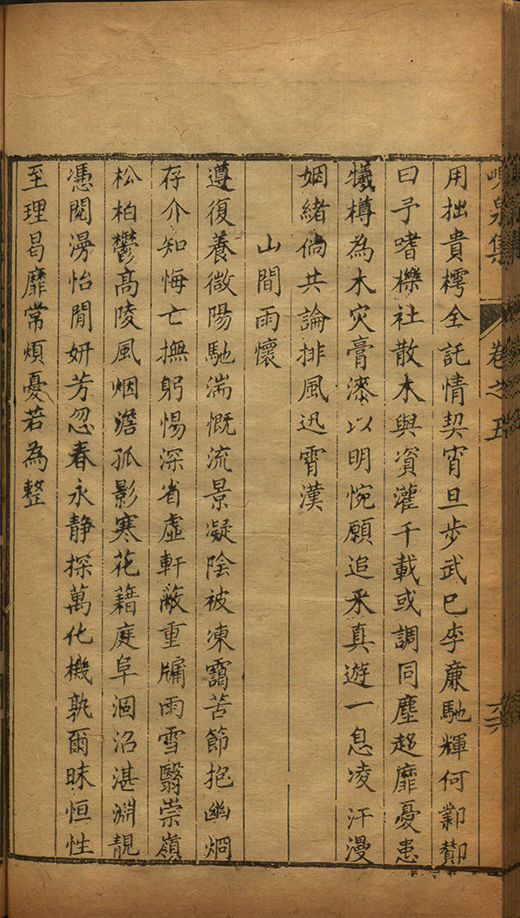 泉集　卷之五
用拙貴樗全託情契宵旦步武巳李廉馳輝何酇
曰予嗜櫟社散木與資灌千載或調同塵趍靡憂患
犧樽為木灾膏漆以明惋願追釆真遊一息凌汗漫
姻緒倘共論排風迅霄漢
山間雨懷
遵復養微陽馳湍慨流景凝陰被凍靄苦節抱幽炯
存介知悔亡撫躬惕深省虛軒敝重牖雨雪翳崇嶺
松柏鬱高陵風烟澹孤影寒花籍庭阜涸沼湛淵靚
憑閱漫怡閒妍芳忽春永静探萬化機孰爾昧恒性
至理曷靡常煩憂若為整